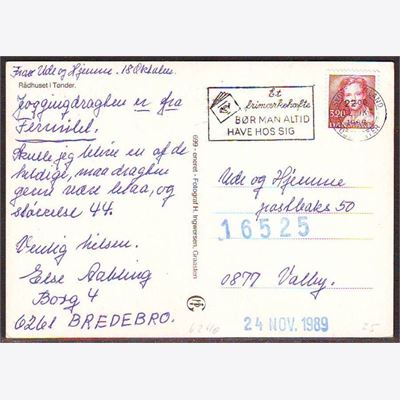 Fra Ude og Hjemme. 18 Oktober.
Rådhuset i Tønder.
Joggingdragten er fra
Fermilet.
Skulle jeg blive en af de
heldige, maa dragten
gerne være blaa, og
størrelse 44.
Venlig hilsen.
Else Aabling
Borg 4
6261 BREDEBRO.
699 Eneret - Fotograf H. Ingwersen, Graasten
Et
frimærkehæfte
BØR MAN ALTID
HAVE HOS SIG
320
DANMARK
Ude og Hjemme
postboks 50
16525
0877 Valby.
24 NOV. 1989
6240
25